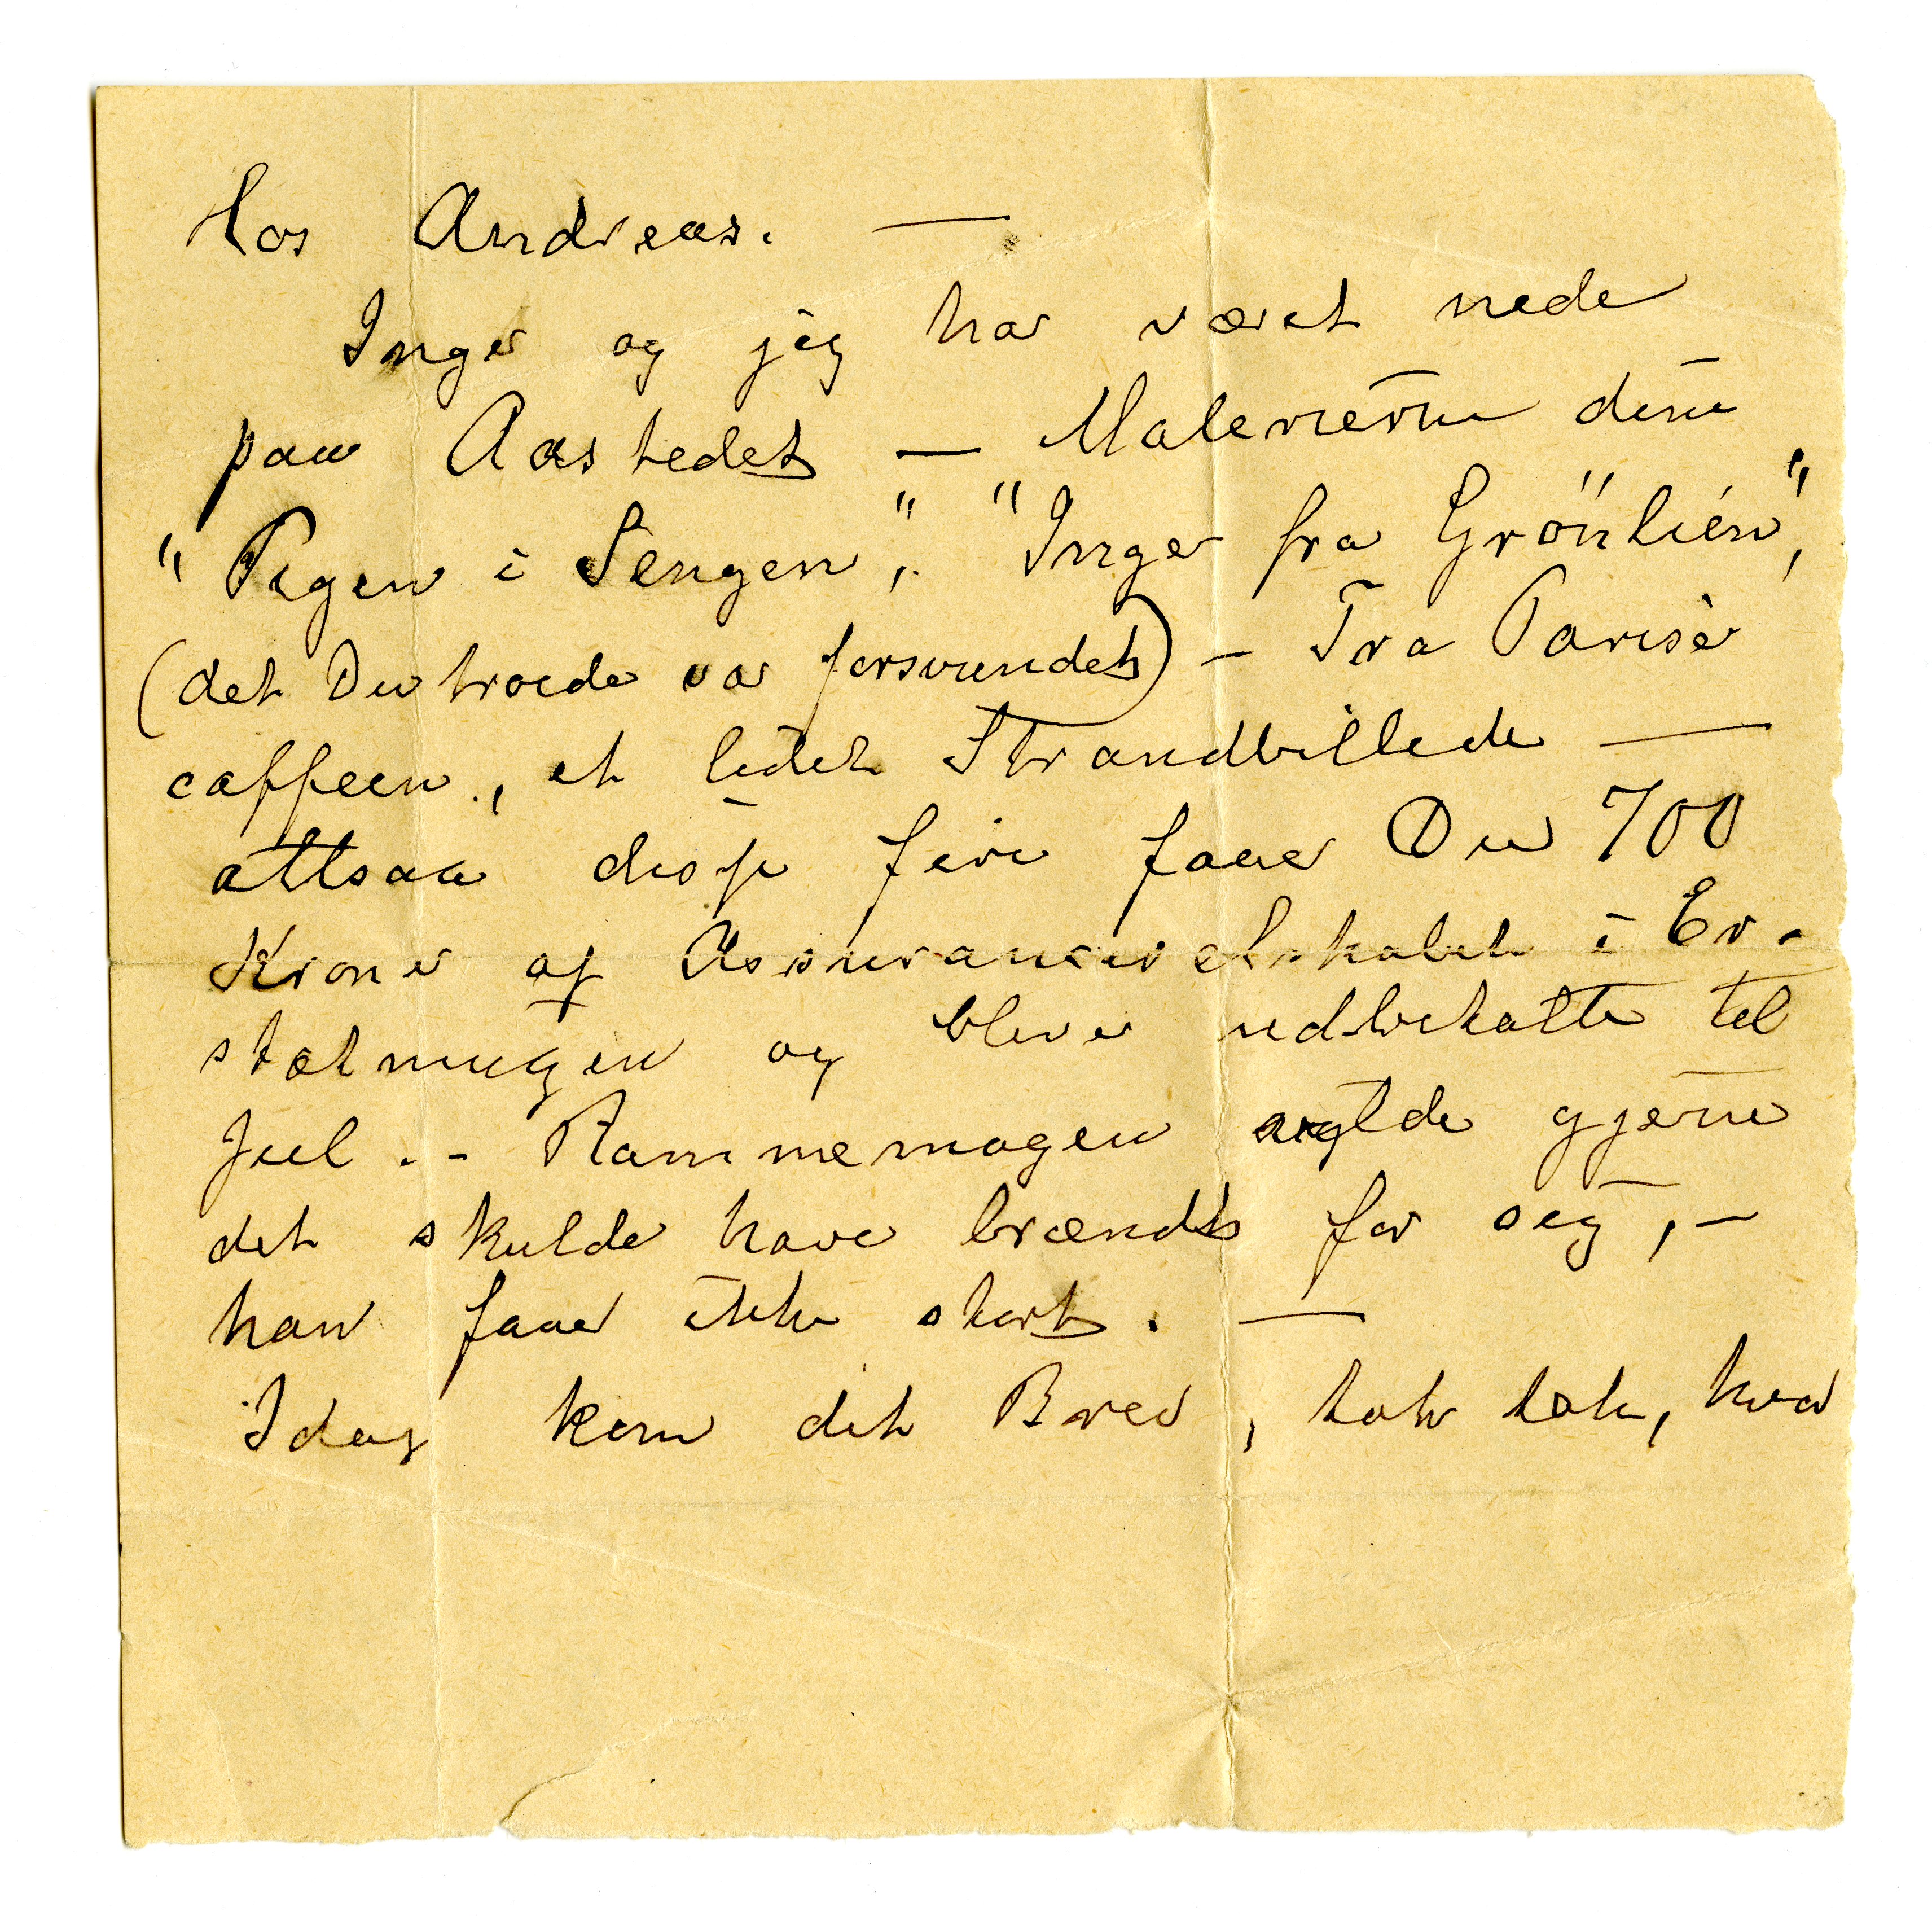 Hos Andreas. —
Inger og jeg har været nede
paa Aastedet — Malerierne dine
"Pigen i Sengen", "Inger fra Grönlien",
(det Du troede var forsvundet) – Fra Pariser
caffeen, et lidet Strandbillede —
altsaa disse fire faaer Du 700
Kroner af Assuranceselskabet i Er-
statningen og bliver udbetalte til
Juul. – Rammemagen vilde gjerne
det skulde have brændt for sig, –
han faaer ikke stort. —
Idag kom dit Brev, tak tak, hvor